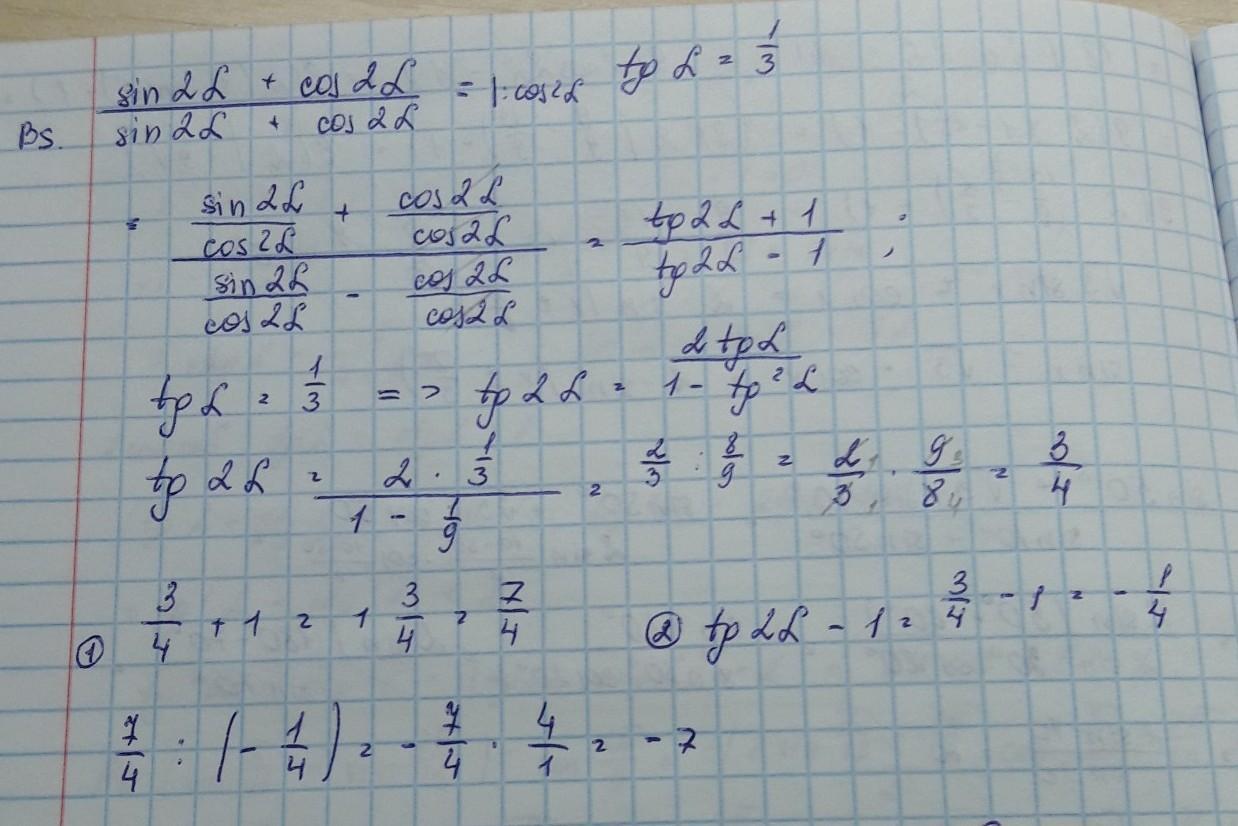 B5. (sin 2α + cos 2α)/(sin 2α + cos 2α) = |:cos2α tgα = 1/3
= (sin 2α/cos 2α + cos 2α/cos 2α)/(sin 2α/cos 2α - cos 2α/cos 2α) = (tg2α + 1)/(tg2α - 1) ;
tgα = 1/3 => tg 2α = 2tgα/(1 - tg²α)
tg 2α = (2 · 1/3)/(1 - 1/9) = 2/3 : 8/9 = 2/3 · 9/8 = 3/4
① 3/4 + 1 = 1 3/4 = 7/4 ② tg2α - 1 = 3/4 - 1 = - 1/4
7/4 : (- 1/4) = - 7/4 · 4/1 = - 7